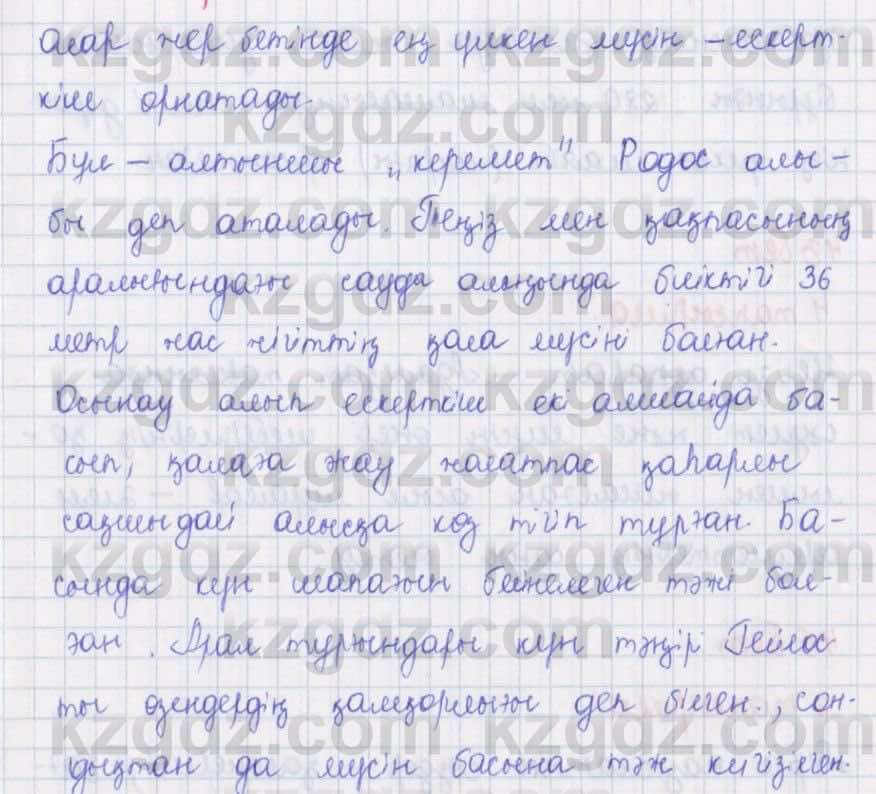 Олар жер бетінде ең үлкен мүсін – ескерт-
кіш орнатады.
Бұл – алтыншы „керемет" Родос алы-
бы деп аталады. Теңіз мен қақпасының
аралығындағы сауда алаңында биіктігі 36
метр жас жігіттің қола мүсіні болған.
Осынау алып ескерткіш екі алшайда ба-
сып, қалаға жау жолатпас қаһарлы
сақшыдай алысқа көз тігіп тұрған. Ба-
сында күн шапағын бейнелеген тәжі бол-
ған. Арал тұрғындары күн тәңірі Гейлос
ты өзендердің қамқорлығы деп білген., сон-
дықтан да мүсін басына тәж кигізілген.
kzgdz.com